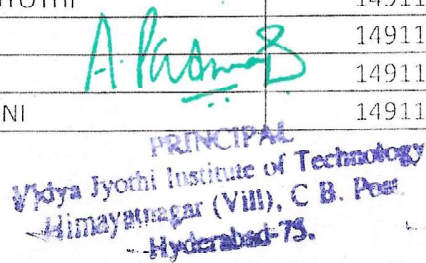 YOTHI 14911
14911
A. Padmaj 14911
NI 14911
PRINCIPAL
Vidya Jyothi Institute of Technology
Himayatnagar (Vill), C B. Post
Hyderabad-75.